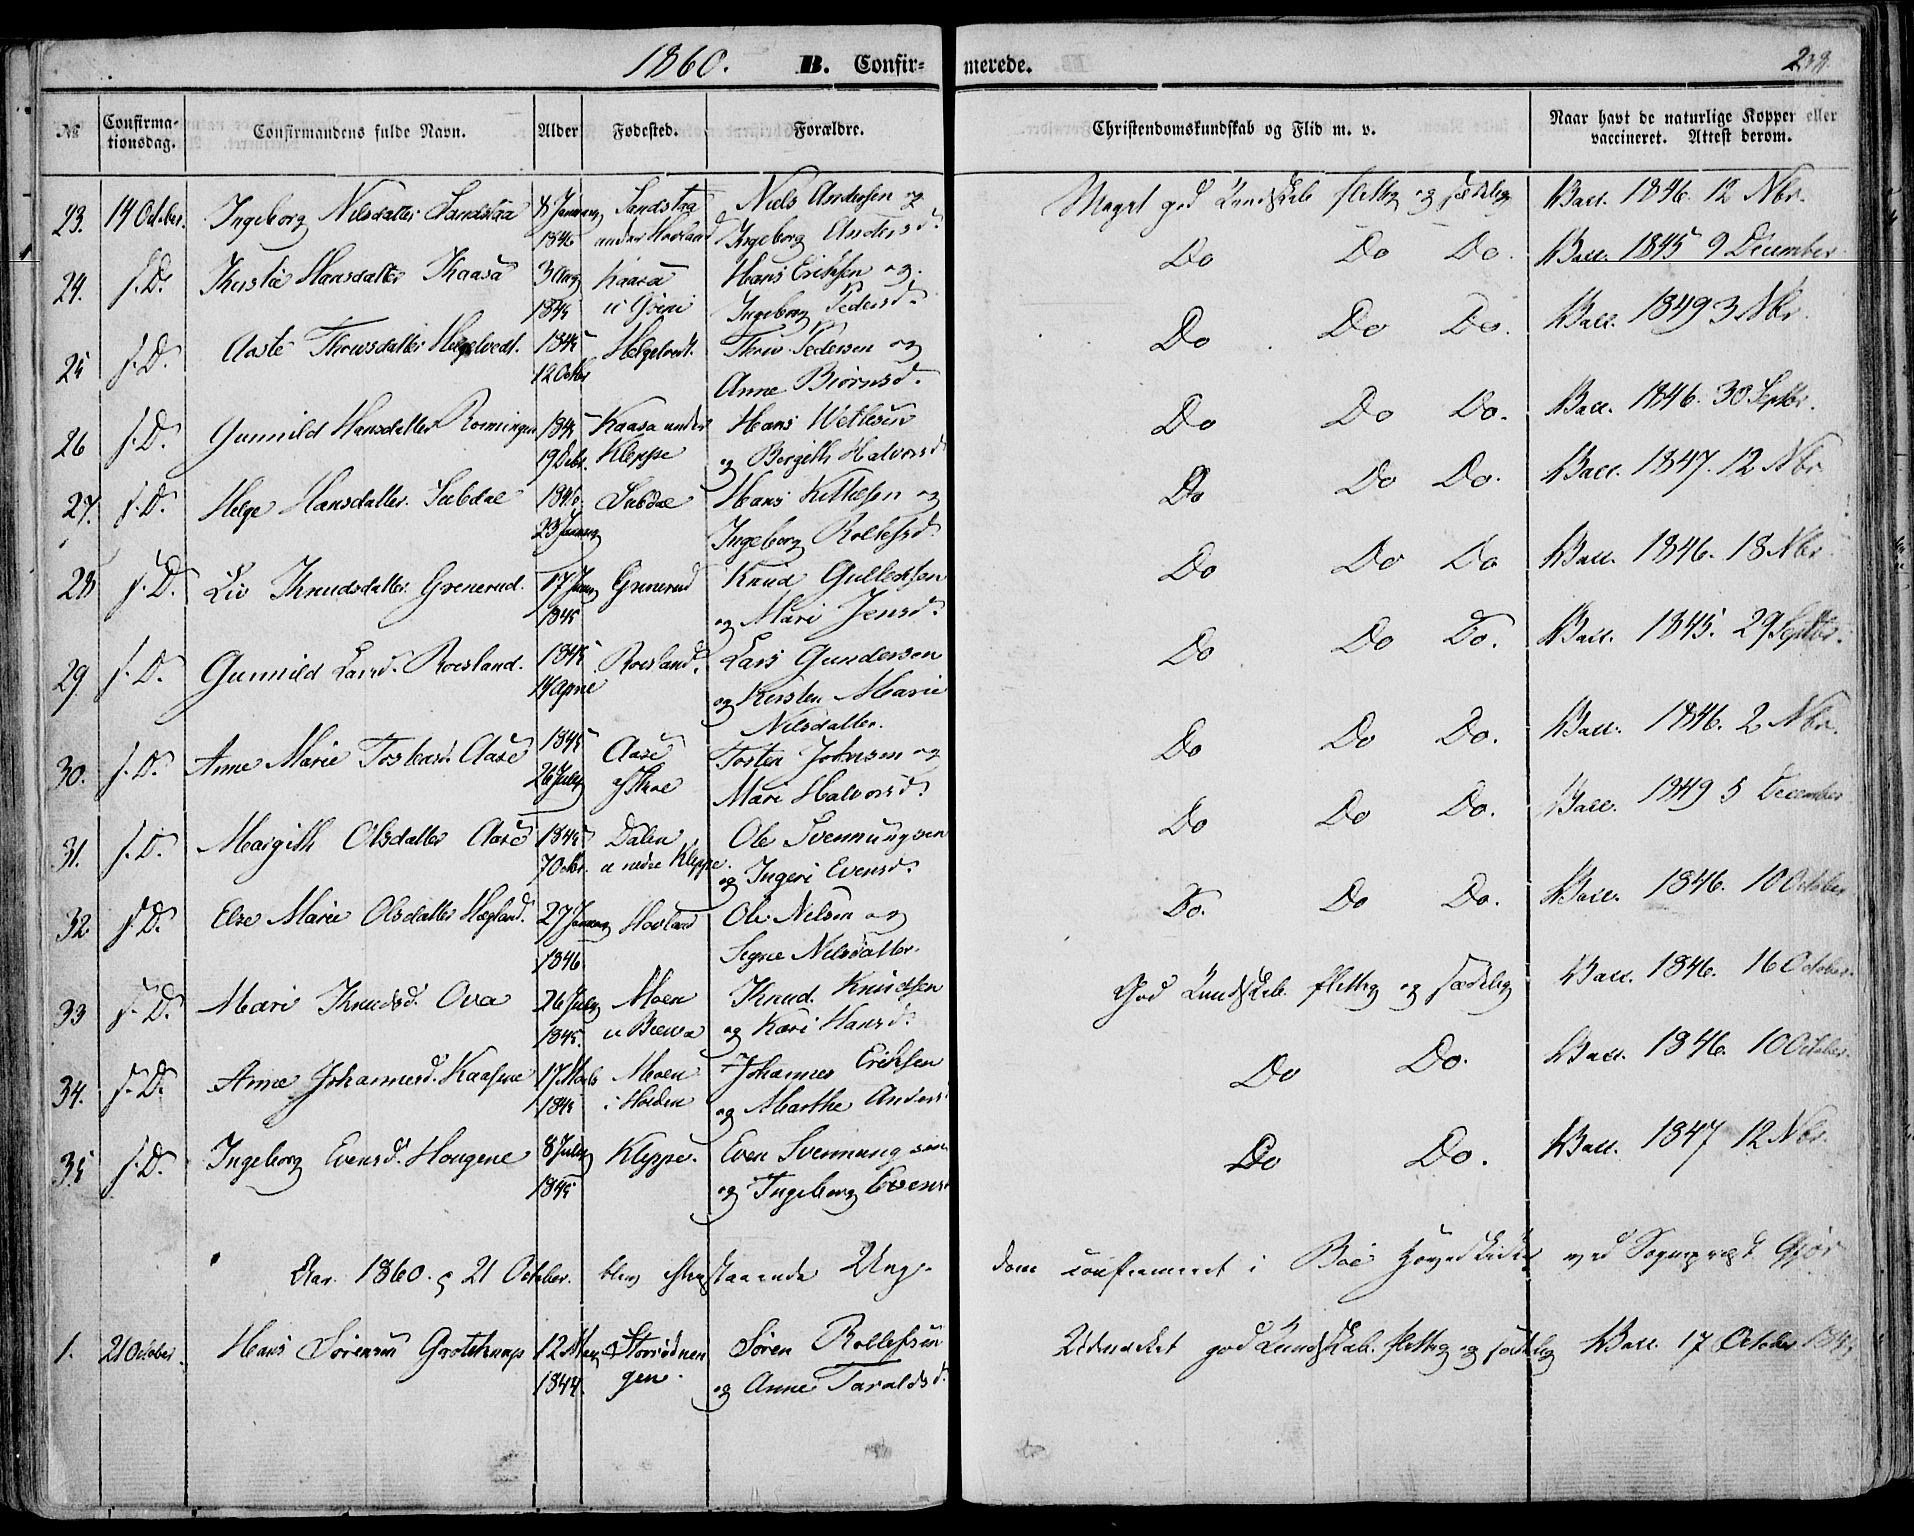 1860. B. Confir- merede.
№ Confirma-tionsdag. Confirmandens fulde Navn. Alder Fødested. Forældre. Christendomskundskab og Flid m. v. Naar havt de naturlige Kopper eller vaccineret. Attest derom.
23. 14 October. Ingeborg Nilsdatter Sandstaa 8 January Sandstaa Niels Andersen og Meget god Kundskab flittig og sædelig Vacc. 1846. 12 Nbr.
1846 under Hovland Ingeborg Andersd.
24. s. D. Hansdatter Kaasa 3 Aug Kaasa Hans Eriksen og Do Do Do. Vacc. 1845 9 December
1845 Ingeborg Pedersd.
25 s. D. Aaste Helgetvedt. 1845 Helgetvedt. Pedersen og Do Do Do. Vacc. 1849 3 Nbr.
12 Octbr Anne Biørnsd.
26 s. D. Gunnild Hansdatter 1845 Kaasa under Hans Wetlesen Do Do Do. Vacc. 1846. 30 Septbr.
19 Debr. Kleppe og Bergith Halvorsd
27. s. D. Helge Hansdatter Sæbdae 1846 Sæbdae Hans Kittilsen og Do Do Do. Vacc. 1847. 12 Nbr.
23 January Ingeborg Rollefsd.
28 s. D. Liv Knudsdatter Grenerud. 17 Grenerud Knud Gulleksen Do Do Do Vacc. 1846. 18 Nbr.
1845 og Mari Jensd.
29 s. D. Gunnild Larsd. Roesland. 1845 Roesland. Lars Gundersen Do Do Do. Vacc. 1845. 29 Septbr.
14 April og Kirsten Marie
Nilsdatter.
30. s. D. Anne Marie Tostensd. Aase 1845 Aase Tosten Johnsen og Do Do Do. Vacc. 1846. 2 Nbr.
26 July Mari Halvorsd.
31. s. D. Margith Olsdatter Aase 1845 Dalen Ole Svennungsen Do Do Do. Vacc. 1849 5 December
7 Octbr. u nedre Kleppe. og Ingeri Evensd.
32 s. D. Else Marie Olsdatter 27 January Hovland Ole Nelsen og Do. Do Do. Vacc. 1846. 10 October
1846. Signe Nilsdatter.
33 s. D. Mari Knudsd. Ova 26 July Moen Knud Knudsen God Kundskab. flittig og sædelig Vacc. 1846. 16 October.
1845. og Kari Hansd.
34. s. D. Anne Johannesd. Kaasene 17 Marts Moen Johannes Eriksen Do Do. Vacc. 1846. 10 October.
1845 i Holden og Marthe Anders
35 s. D. Ingeborg Evensd. Haugene 8 July Kleppe. Even Svennungsen Do Do. Vacc. 1847 12 Nbr.
1845 og Ingeborg Evens
Aar 1860. d 21 October. blev Ung- dom confirmeret i Bøe Hovedkirke ved Sognepræst
1. 21 October. Hans Sørensen 12 May Søren Rollefsen Udmerket god Kundskab. flittig og sædelig Vacc. 17 October
1844. gen. og Anne Taraldsd.